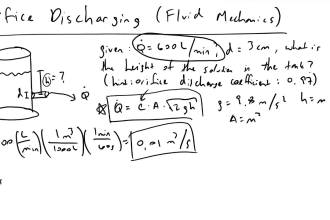 fice Discharging (Fluid Mechanics)
given: Q̇ = 600 L/min, d = 3 cm, what is
the height of the solution in the tank?
(hint: orifice discharge coefficient: 0.97)
h = ?
d
Q̇
Q̇ = C·A·√2gh
g = 9.8 m/s² h = m
A = m²
00 (L/min)(1 m³/1000 L)(1 min/60 s) = 0.01 m³/s